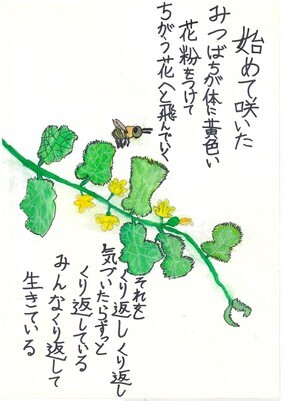 始めて咲いた
みつばちが体に黄色い
花粉をつけて
ちがう花へと飛んでいく
それを
くり返しくり返し
気づいたらずっと
くり返している
みんなくり返して
生きている